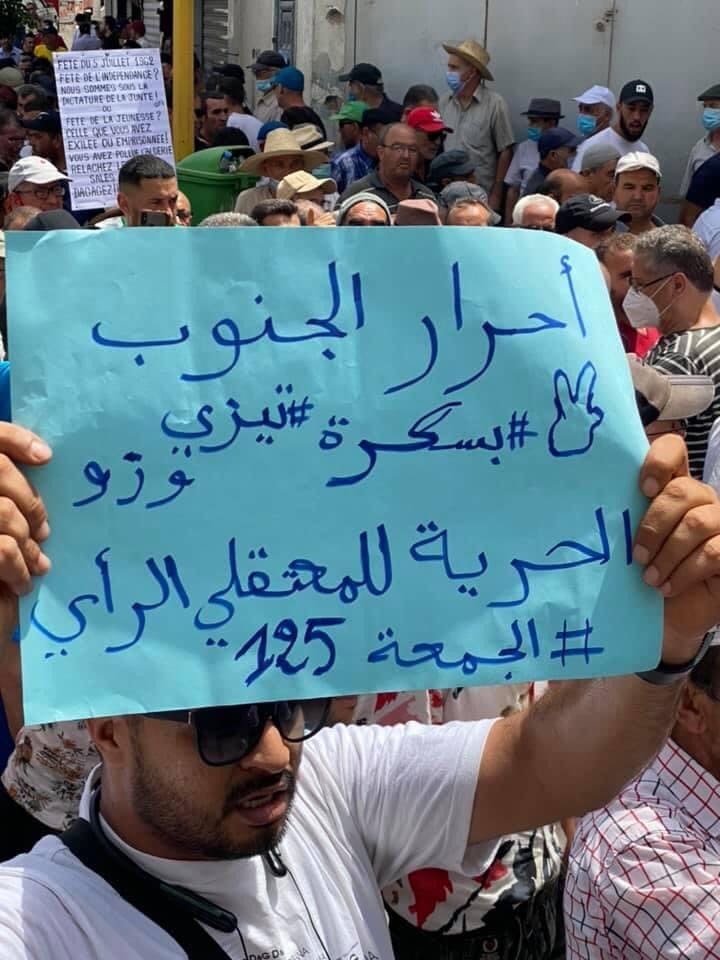 FETE DU 5 JUILLET 1962
FETE DE L'INDEPENDANCE ?
NOUS SOMMES SOUS LA
DICTATURE DE LA JUNTE !
OU
FETE DE LA JEUNESSE ?
CELLE QUE VOUS AVEZ
EXILEE OU EMPRISONNEE
VOUS AVEZ
RELACHEZ
DADAGEZ
أحرار الجنوب
#بسكرة #تيزي
وزو
الحرية للمعتقلي الرأي
#الجمعة 125